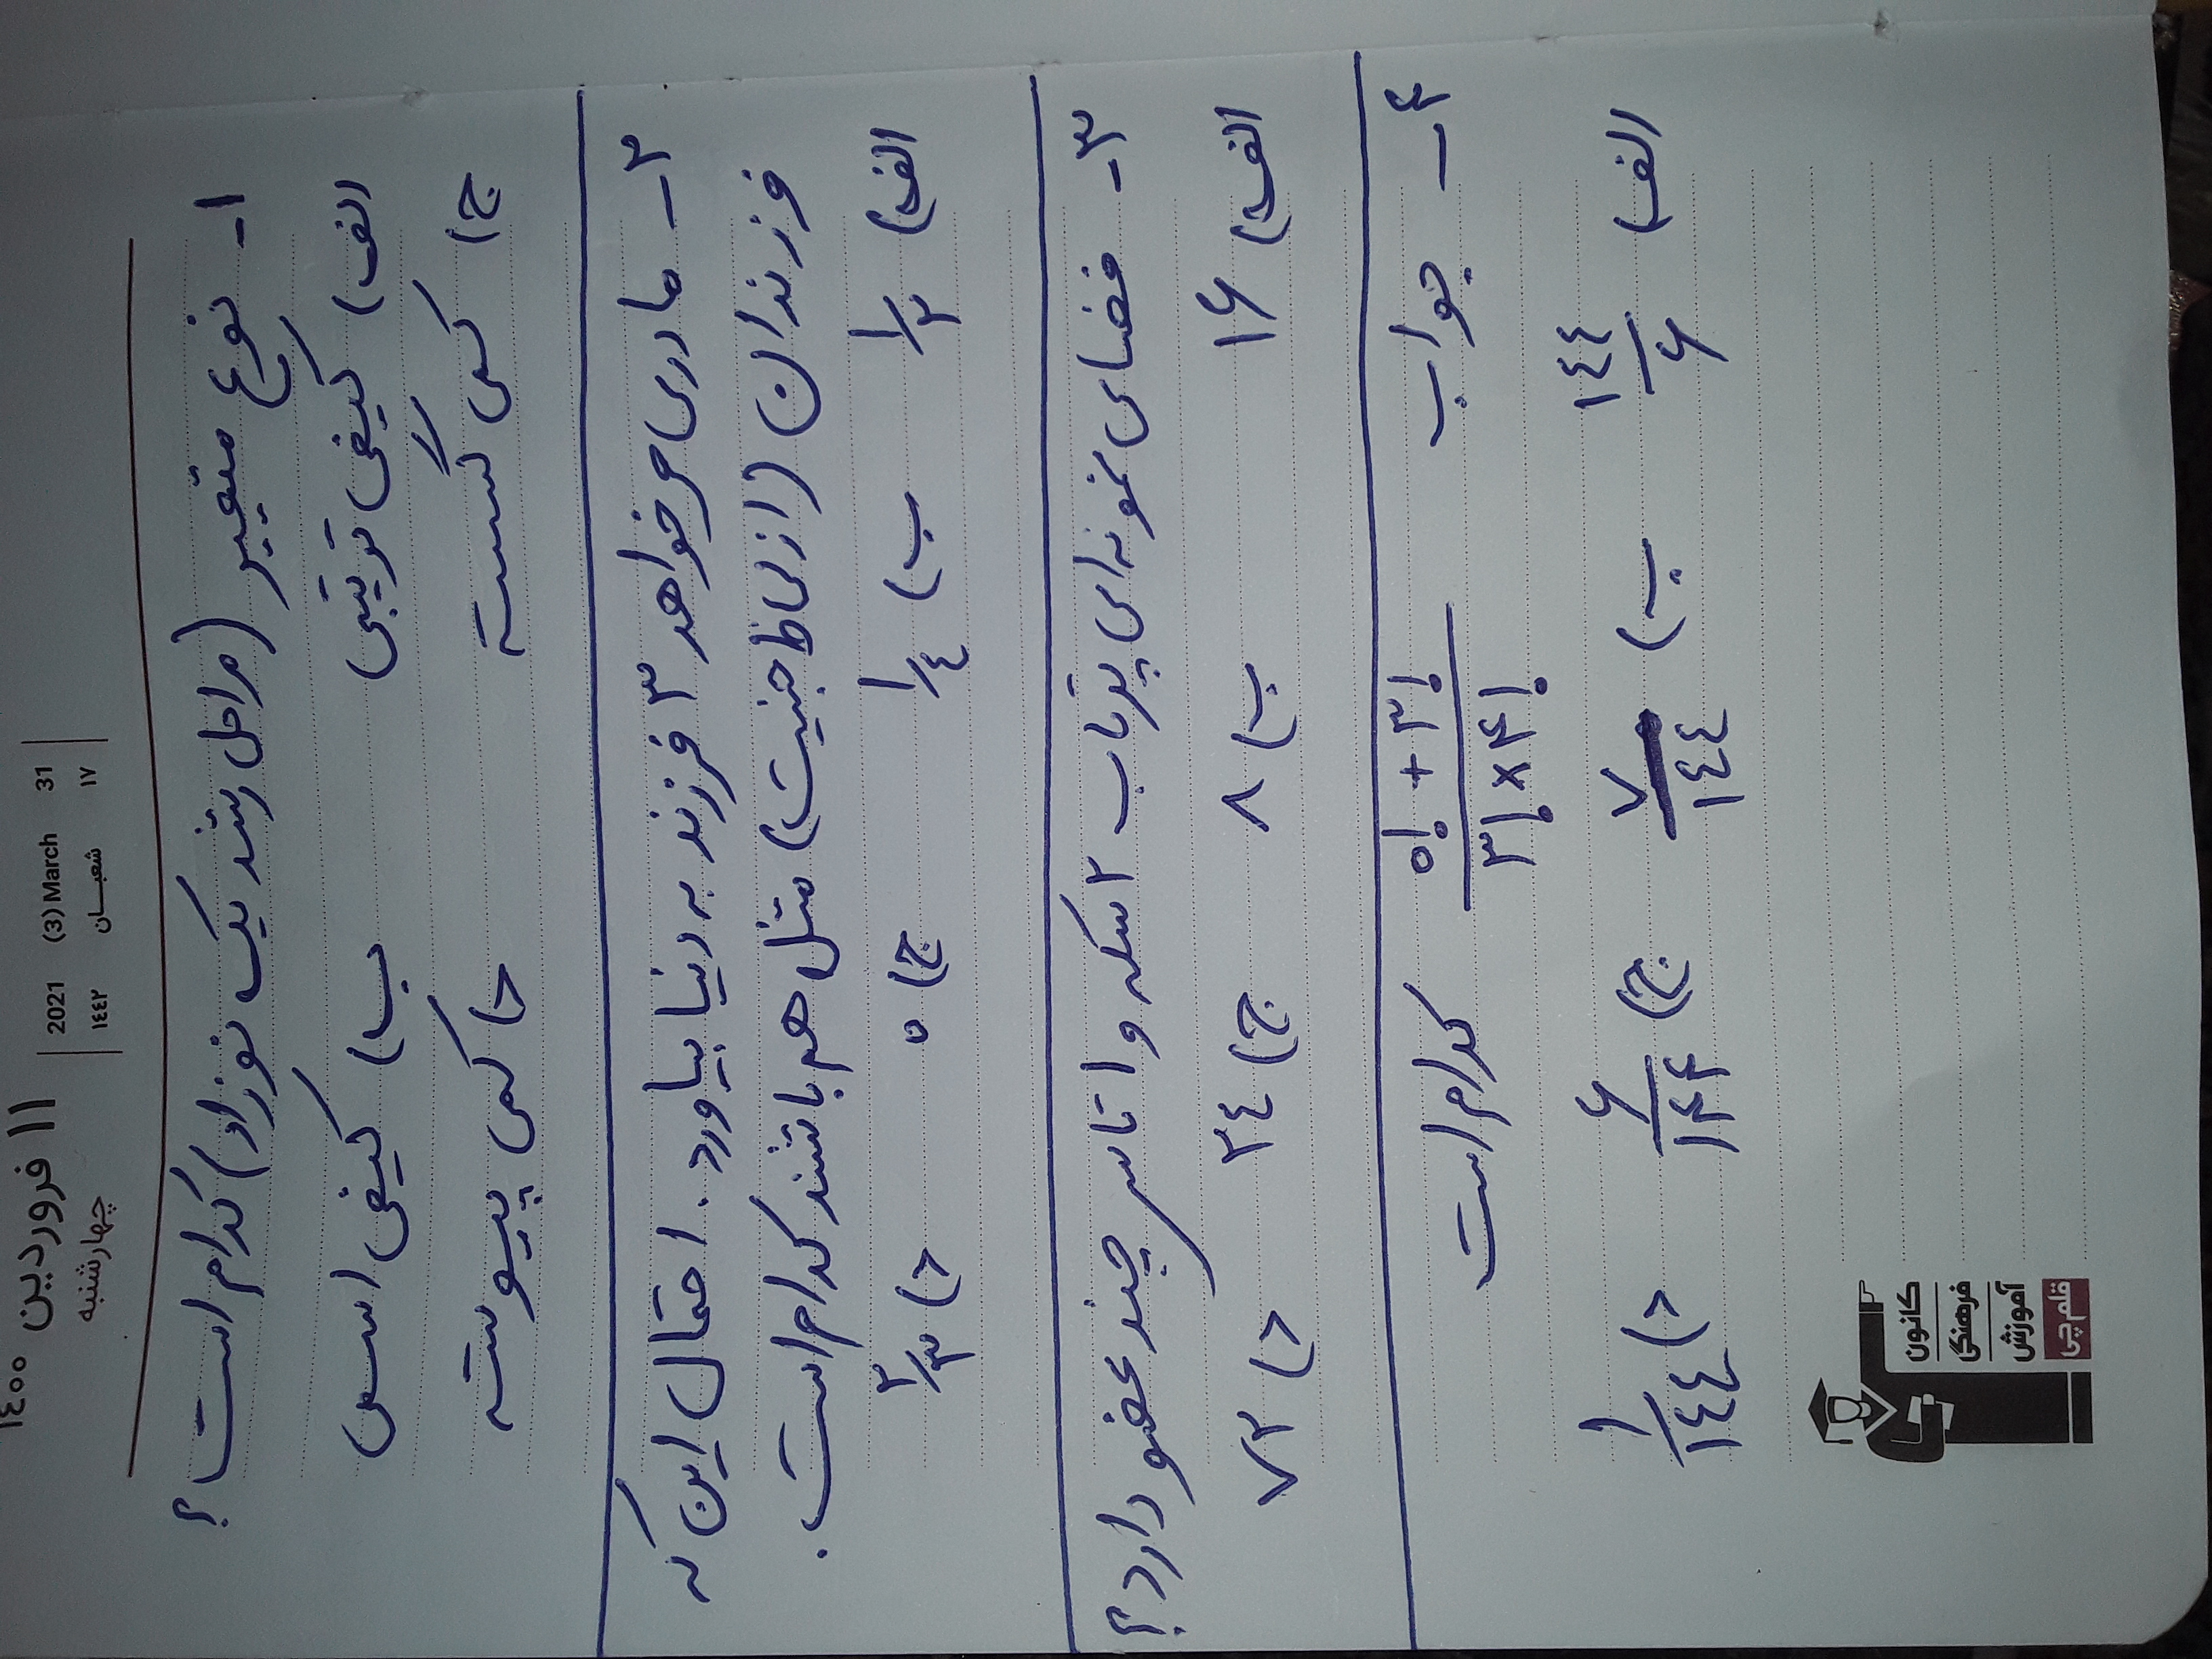 ۱۱ فروردین ۱۴۰۰
چهارشنبه
2021 (3) March 31
١٤٤٢ شعبـــان ١٧
۱- نوع متغییر (مراحل رشد یک نوزاد) کدام است؟
الف) کیفی ترتیبی ب) کیفی اسمی
ج) کمی گسسته د) کمی پیوسته
۲- مادری می‌خواهد ۳ فرزند به دنیا بیاورد. احتمال این که
فرزندان (از لحاظ جنیت) مثل هم باشند کدام است.
الف) ۱/۲ ب) ۱/٤ ج) ۰ د) ۲/۳
۳- فضای نمونه‌ای پرتاب ۲ سکه و ۱ تاس چند عضو دارد؟
الف) ۱۶ ب) ۸ ج) ۲٤ د) ۷۲
۴- جواب (۰! + ۳!)/(۳! × ۴!) کدام است
الف) ۱٤٤/۶ ب) ۷/۱٤٤ ج) ۶/۱۴۴ د) ۱/۱٤٤
کانون
فرهنگی
آموزش
قلم‌چی